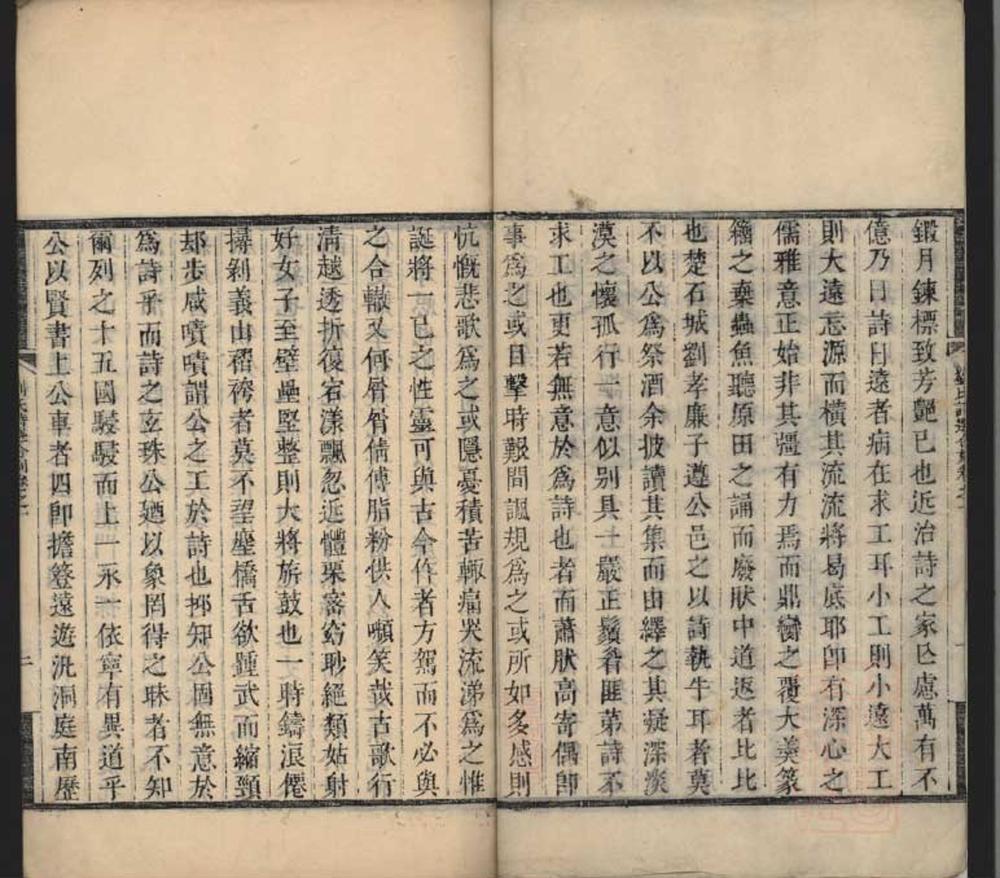 鍛月鍊標致芳艷已也近治詩之家亾慮萬有不
億乃日詩日遠者病在求工耳小工則小遠大工
則大遠忘源而橫其流流將曷底耶卽有深心之
儒雅意正始非其彊有力焉而鼎臠之覆大羹篆
籀之棄蟲魚聽原田之誦而廢肰中道返者比比
也楚石城劉孝廉子遵公邑之以詩執牛耳者莫
不以公爲祭酒余披讀其集而由繹之其凝深淡
漠之懷孤行一意似别具一嚴正鬚眷匪第詩不
求工也更若無意於爲詩也者而蕭肰高寄偶卽
事爲之或目擊時艱間諷規爲之或所如多感則
忼慨悲歌爲之或隱憂積苦輙痛哭流涕爲之惟
誕將一已之性靈可與古今作者方駕而不必與
之合轍又何屑屑倩傅脂粉供人嚬笑哉古歌行
清越透折復宕漾飄忽近體栗宻窈眇絕類姑射
好女子至壁壘堅整則大將旂鼓也一時鑄浪僊
撏剝義山褶袴者莫不望塵橋舌欲踵武而縮頸
却步咸嘖嘖謂公之工於詩也抑知公固無意於
爲詩乎而詩之玄珠公廼以象罔得之昧者不知
爾列之十五國駸駸而上一禀一依寧有異道乎
公以賢書上公車者四卽擔簦遠遊汎洞庭南歷